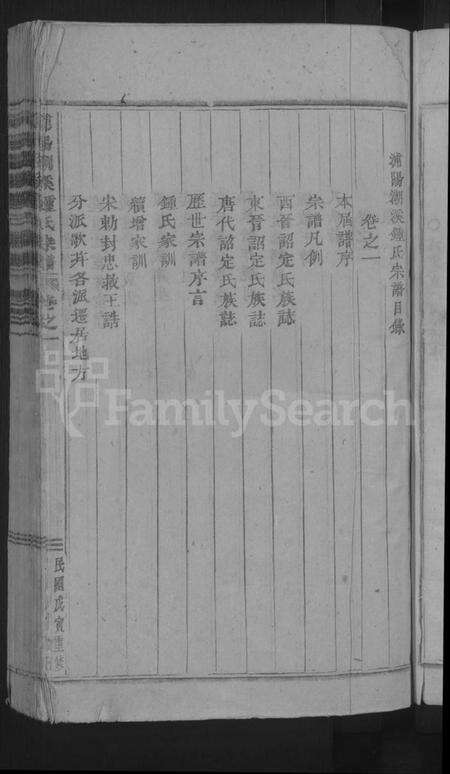 浦陽湖溪鍾氏宗譜目錄
卷之一
本屆譜序
宗譜凡例
西晉詔定氏族誌
東晉詔定氏族誌
唐代詔定氏族誌
歷世宗譜序言
鍾氏家訓
續增家訓
宋勅封忠救王誥
分派歌并各派遷居地方
民國戊寅重修
FamilySearch